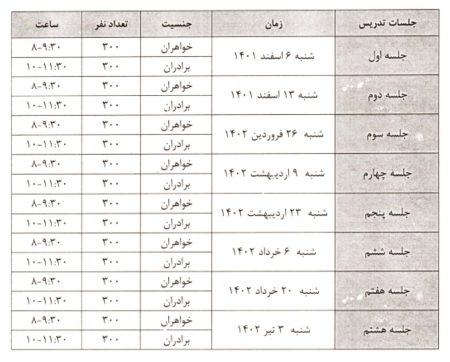 جلسات تدریس زمان جنسیت تعداد نفر ساعت
جلسه اول شنبه ۶ اسفند ۱۴۰۱ خواهران ۳۰۰ ۸-۹:۳۰
برادران ۳۰۰ ۱۰-۱۱:۳۰
جلسه دوم شنبه ۱۳ اسفند ۱۴۰۱ خواهران ۳۰۰ ۸-۹:۳۰
برادران ۳۰۰ ۱۰-۱۱:۳۰
جلسه سوم شنبه ۲۶ فروردین ۱۴۰۲ خواهران ۳۰۰ ۸-۹:۳۰
برادران ۳۰۰ ۱۰-۱۱:۳۰
جلسه چهارم شنبه ۹ اردیبهشت ۱۴۰۲ خواهران ۳۰۰ ۸-۹:۳۰
برادران ۳۰۰ ۱۰-۱۱:۳۰
جلسه پنجم شنبه ۲۳ اردیبهشت ۱۴۰۲ خواهران ۳۰۰ ۸-۹:۳۰
برادران ۳۰۰ ۱۰-۱۱:۳۰
جلسه ششم شنبه ۶ خرداد ۱۴۰۲ خواهران ۳۰۰ ۸-۹:۳۰
برادران ۳۰۰ ۱۰-۱۱:۳۰
جلسه هفتم شنبه ۲۰ خرداد ۱۴۰۲ خواهران ۳۰۰ ۸-۹:۳۰
برادران ۳۰۰ ۱۰-۱۱:۳۰
جلسه هشتم شنبه ۳ تیر ۱۴۰۲ خواهران ۳۰۰ ۸-۹:۳۰
برادران ۳۰۰ ۱۰-۱۱:۳۰